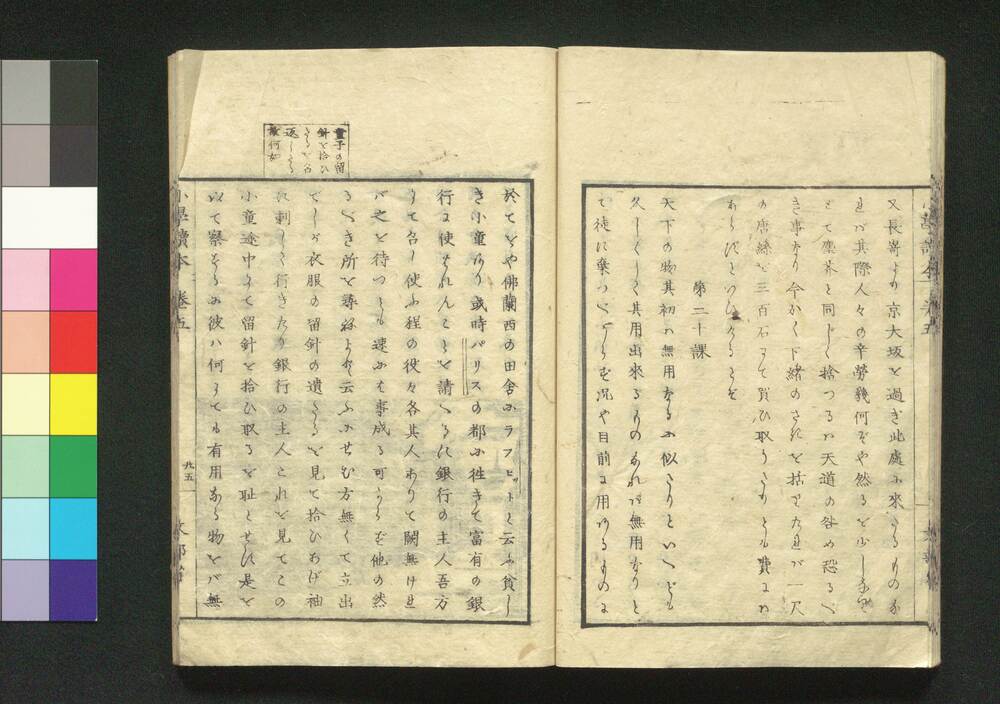 又長嵜より京大坂を過ぎ此處に來りしものな
れバ其際人々の辛勞幾何ぞや然るを少しなり
とて塵芥と同じく捨つるハ天道の咎め恐るべ
き事なり今かく下緒のさきを括りたれバ一尺
の唐絲を三百石にて買ひ取りたりとも費にハ
あらずといひけるとぞ
第二十課
天下の物其初ハ無用なるに似たりといへども
久しくして其用出來るものあれバ無用なりと
て徒に棄つべからず况や目前に用あるものに
童子の留
針を拾ひ
何如
於てをや佛蘭西の田舍にラフヒットと云ふ貧し
き小童あり或時パリスの都に徃きて富有の銀
行に使はれんことを請へるに銀行の主人吾方
にて召し使ふ程の役々各其人ありて闕無けれ
バ之を待つとも速にハ事成る可からず他の然
るべき所を尋ねよかしと云ふにせむ方無くて立出
でしが衣服の留針の遺ちたるを見て拾ひあげ袖
に刺して行きたり銀行の主人これを見てこの
小童途中にて留針を拾ひ取るを恥とせず是を
以て察するに彼ハ何にても有用なる物をバ無
小學讀本 卷五
廿五
文部省